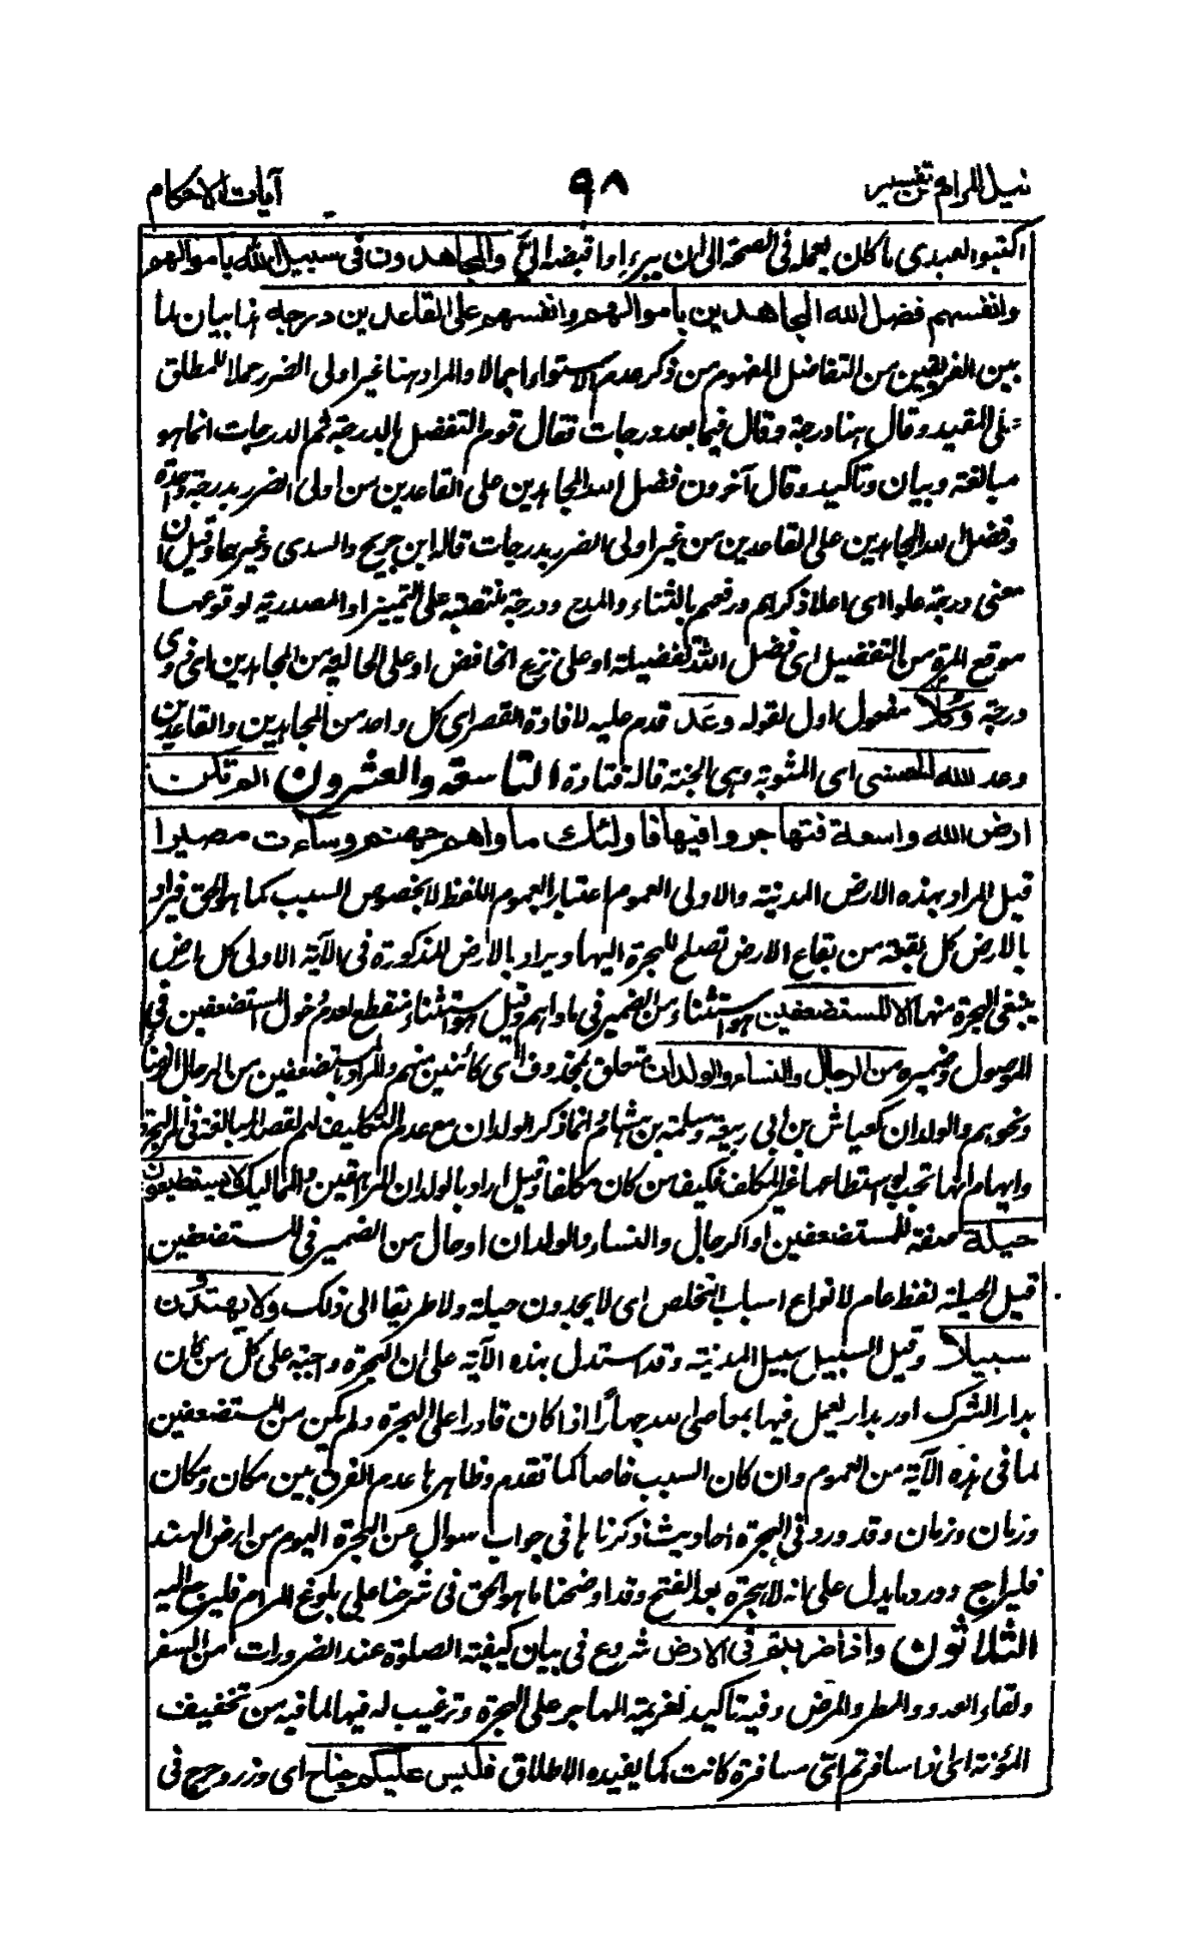 نيل المرام من تفسير ٩٨ آيات الاحكام
اكتبوا لعبدى ما كان يعمله فى الصحة الى ان يبرء او اقبضه الىّ والمجاهدون فى سبيل الله باموالهم
وانفسهم فضل الله المجاهدين باموالهم وانفسهم على القاعدين درجة هذا بيان لما
بين الفريقين من التفاضل المفهوم من ذكر عدم الاستواء اجمالا والمراد هنا غير اولى الضرر حملا للمطلق
على المقيد وقال هنا درجة وقال فيما بعد درجات فقال قوم التفضيل بالدرجة ثم الدرجات انما هو
مبالغة وبيان وتاكيد وقال آخرون فضل الله المجاهدين على القاعدين من اولى الضرر بدرجة واحدة
وفضل الله المجاهدين على القاعدين من غير اولى الضرر بدرجات قاله ابن جريج والسدى وغيرهما وقيل ان
معنى درجة علوا اى اعلا ذكرهم ورفعهم بالثناء والمدح ودرجة منتصبة على التمييز او المصدرية لوقوعها
موقع المرة من التفضيل اى فضل الله تفضيلة او على نزع الخافض او على الحالية من المجاهدين اى ذوى
درجة وكُلاّ مفعول اول لقوله وعَد قدم عليه لافادة القصر اى كل واحد من المجاهدين والقاعدين
وعد الله الحسنى اى المثوبة وهى الجنة قاله قتادة التاسعة والعشرون الم تكن
ارض الله واسعة فتهاجروا فيها فاولئك ماواهم جهنم وساءت مصيرا
قيل المراد بهذه الارض المدنية والاولى العموم اعتبارا بعموم اللفظ لا بخصوص السبب كما هو الحق فيراد
بالارض كل بقعة من بقاع الارض تصلح للهجرة اليها ويراد بالارض المذكورة فى الآية الاولى كل ارض
ينبغى الهجرة منها الا المستضعفين هو استثناء من الضمير فى ماواهم وقيل هو استثناء منقطع لعدم دخول المستضعفين فى
الموصول وضميره من الرجال والنساء والولدان متعلق بمحذوف اى كائنين منهم والمراد بالمستضعفين من الرجال الزمنا
ونحوهم والولدان كعياش بن ابى ربيعة وسلمة بن هشام وانما ذكر الولدان مع عدم التكليف لهم لقصد المبالغة فى امر الهجرة
وايهام انها تجب لو استطاعها غير المكلف فكيف من كان مكلفا وقيل اراد بالولدان المراهقين والمماليك لا يستطيعون
حيلة صفة للمستضعفين او الرجال والنساء والولدان او حال من الضمير فى المستضعفين
قيل الحيلة لفظ عام لانواع اسباب التخلص اى لا يجدون حيلة ولا طريقا الى ذلك ولا يهتدون
سبيلا وقيل السبيل سبيل المدنية وقد استدل بهذه الآية على ان الهجرة واجبة على كل من كان
بدار الشرك او بدار يعمل فيها بمعاصى الله جهارًا اذا كان قادرا على الهجرة ولم يكن من المستضعفين
لما فى هذه الآية من العموم وان كان السبب خاصا كما تقدم وظاهرها عدم الفرق بين مكان ومكان
وزمان وزمان وقد ورد فى الهجرة احاديث ذكرناها فى جواب سوال عن الهجرة اليوم من ارض الهند
فليراجع وورد ما يدل على انه لا هجرة بعد الفتح وقد اوضحنا ما هو الحق فى شرحنا على بلوغ المرام فليرجع اليه
الثلاثون واذا ضربتم فى الارض شروع فى بيان كيفية الصلوة عند الضرورات من السفر
ولقاء العدو والمطر والمرض وفيه تاكيد لعزيمة المهاجر على الهجرة وترغيب له فيها لما فيه من تخفيف
المؤنة اى اذا سافرتم اى مسافرة كانت كما يفيده الاطلاق فليس عليكم جناح اى وزر وحرج فى